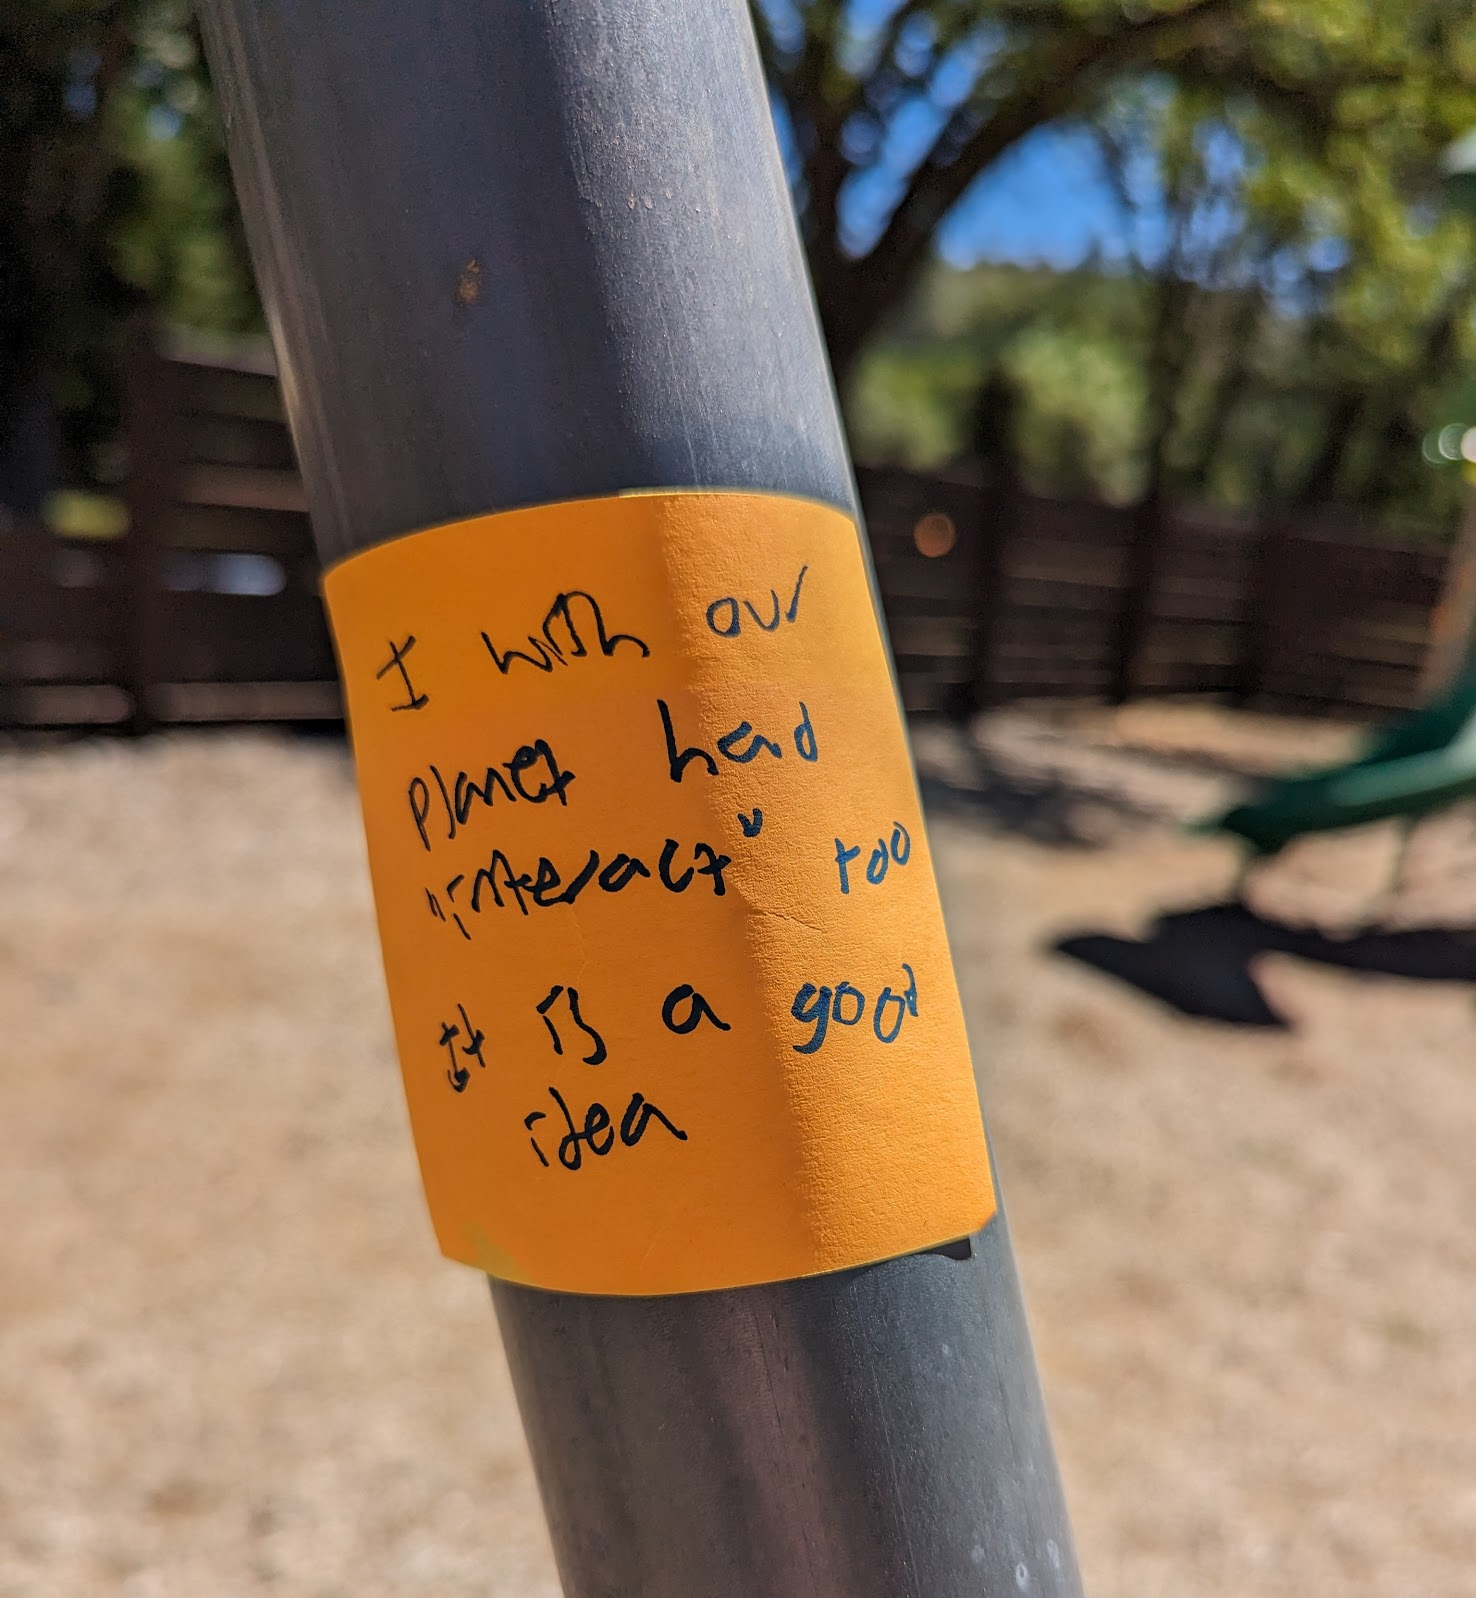 I wish our
planet had
"interact" too
It is a good
idea